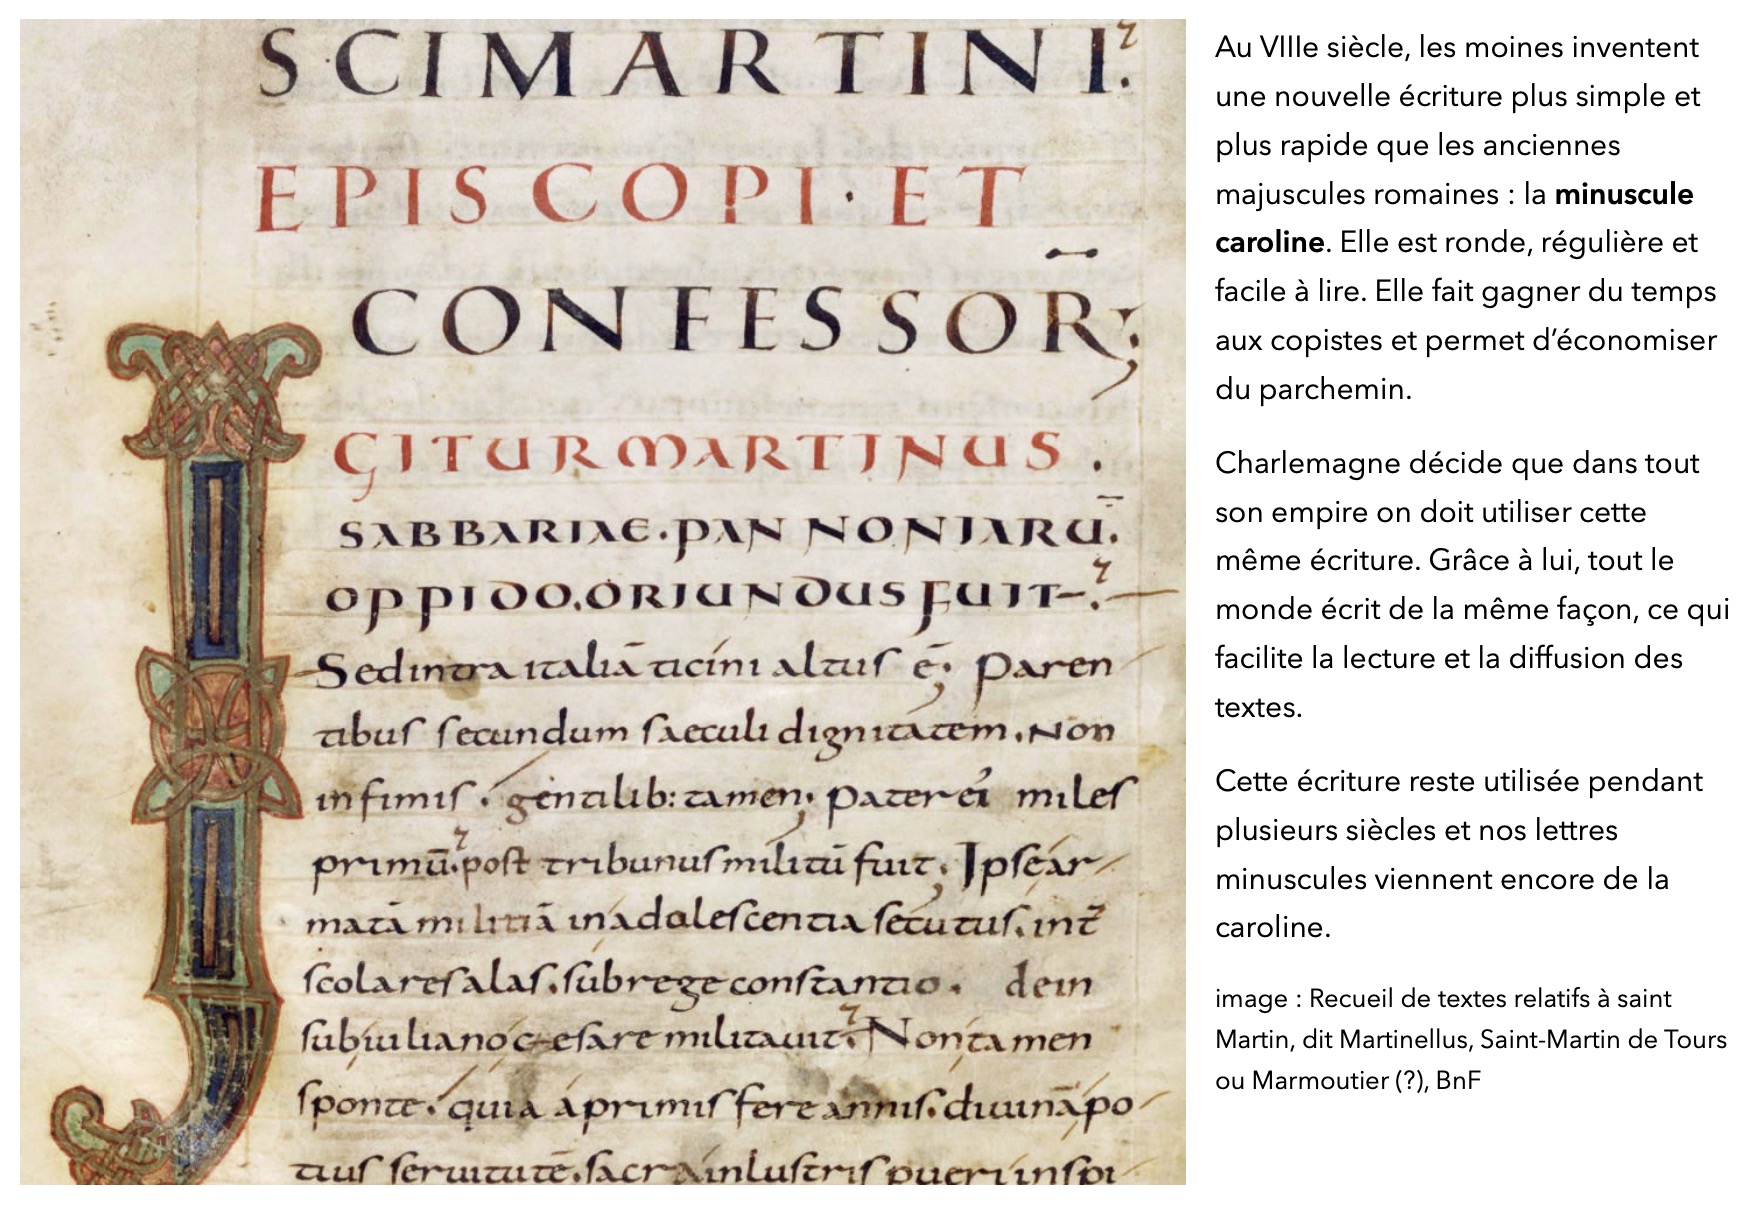 SCI MARTINI.
EPISCOPI · ET
CONFESSOR;
IGITUR MARTINUS .
SABBARIAE · PANNONIARŪ.
OPPIDO. ORIUNDUS FUIT.
Sed intra italiā ticini altus ē; Paren
tibus secundum saeculi dignitatem. Non
infimis. gentilib: tamen; Pater ei miles
primū. post tribunus militū fuit; Ipse ar
matā militiā in adolescentia secutus. int
scolares alas. sub rege constantio. dein
sub iuliano cęsare militauit. Non tamen
sponte. quia a primis fere annis. diuinā po
tius seruitutē. sacra inlustris pueri inspi
Au VIIIe siècle, les moines inventent
une nouvelle écriture plus simple et
plus rapide que les anciennes
majuscules romaines : la minuscule
caroline. Elle est ronde, régulière et
facile à lire. Elle fait gagner du temps
aux copistes et permet d’économiser
du parchemin.
Charlemagne décide que dans tout
son empire on doit utiliser cette
même écriture. Grâce à lui, tout le
monde écrit de la même façon, ce qui
facilite la lecture et la diffusion des
textes.
Cette écriture reste utilisée pendant
plusieurs siècles et nos lettres
minuscules viennent encore de la
caroline.
image : Recueil de textes relatifs à saint
Martin, dit Martinellus, Saint-Martin de Tours
ou Marmoutier (?), BnF